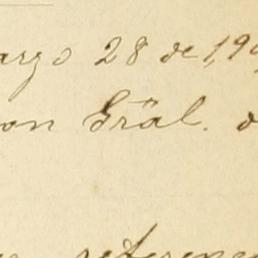 arzo 28 de 190
on Gräl. d
referen